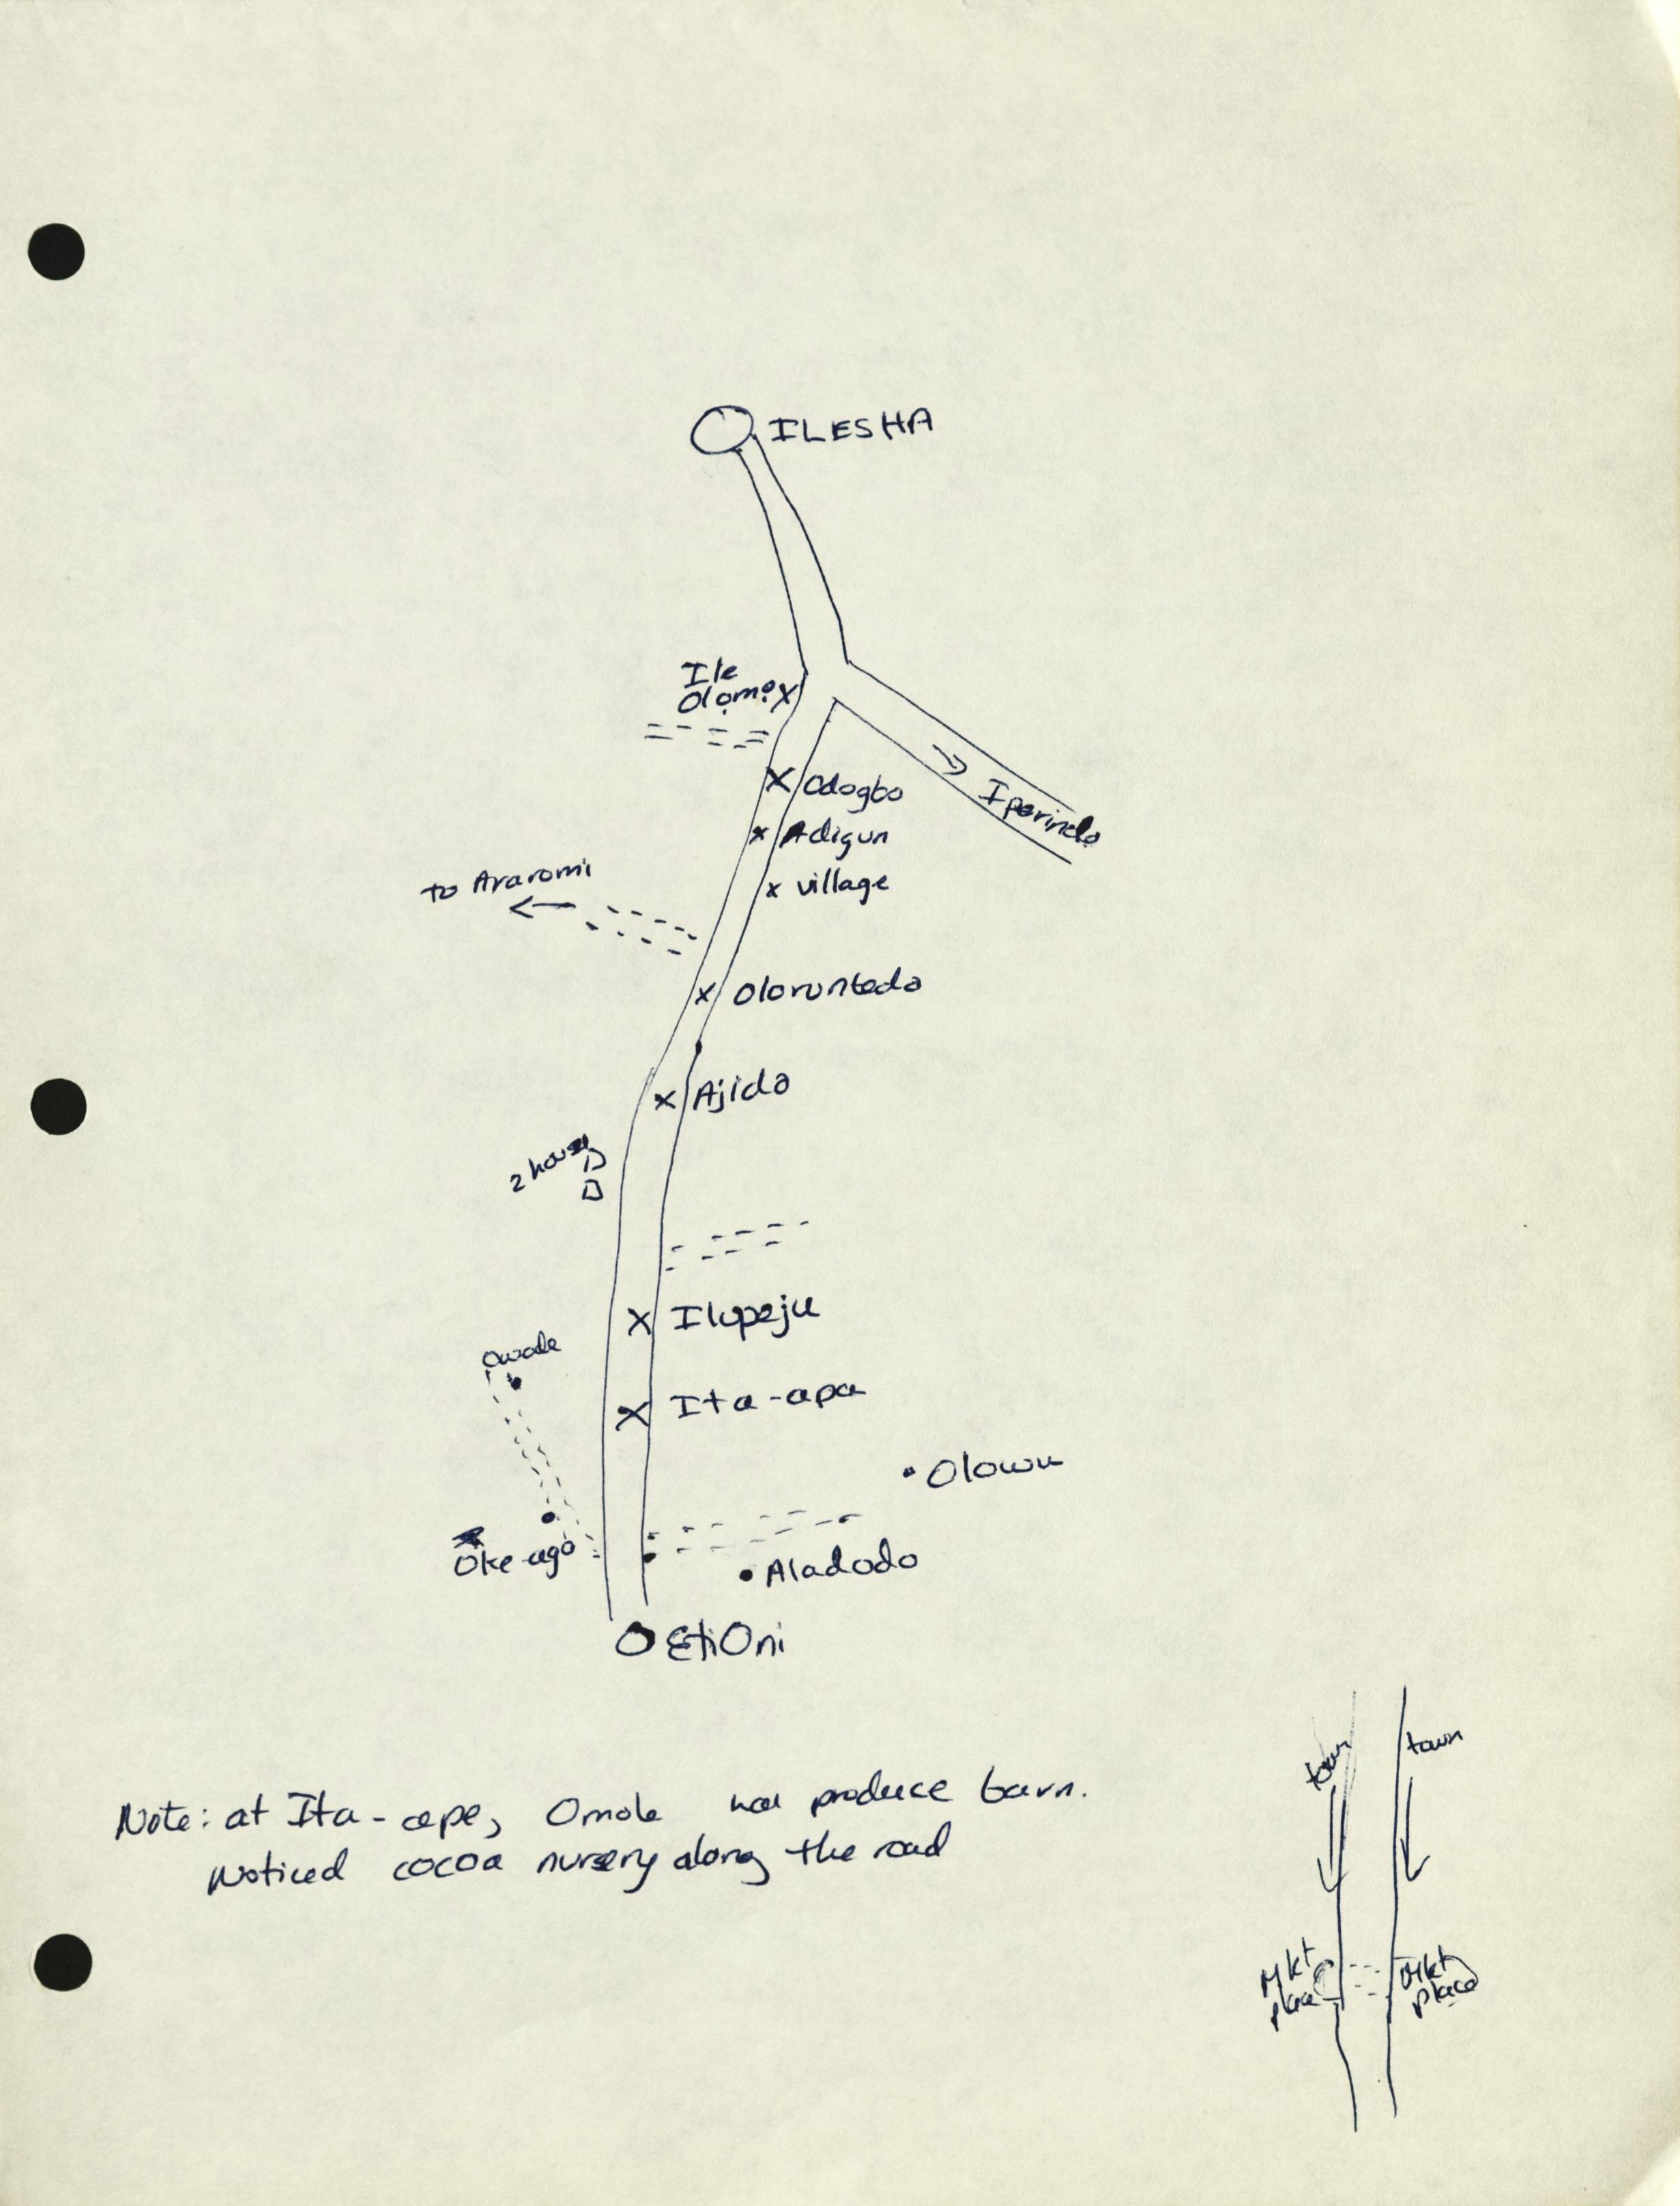 ILESHA
Ile
Olomo
Odogbo
Iperindo
Adigun
village
to Araromi
Oloruntedo
Ajido
2 houses
Ilupeju
Owode
Ita-apa
Olowu
Oke-ago
Aladodo
EtiOni
town
town
Note: at Ita-ape, Omole has produce barn.
Noticed cocoa nursery along the road
Mkt
place
Mkt
place